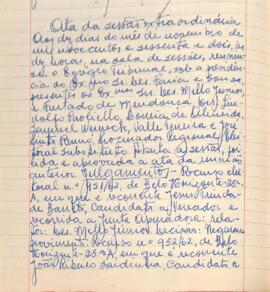 Ata da sessão extraordinária
Aos dez dias do mês de novembro de
mil novecentos e sessenta e dois, às
dez horas, na sala de sessões, reuniu-se
o Egrégio Tribunal, sob a presidência
do Exmo Snr. Des.
presentes os Exmos Srs. Des. Mello Junior,
e Furtado de Mendonça, Drs.
Paoliello, Correia de Almeida,
Valle Ferreira e José
Procurador Regional Eleitoral
Substituto. Aberta a sessão, foi
lida e aprovada a ata da reunião
anterior. Julgamento - Recurso eleitoral
n.º 951/62, de Belo Horizonte-25-
A, em que é recorrente
Candidato a Vereador e
recorrida a Junta Apuradora: relator:
Des. Mello Junior. Decisão: Negaram
provimento. Recurso n.º 952/62, de Belo
Horizonte-25-A, em que é recorrente
João Ribeiro Sardinha, Candidato a